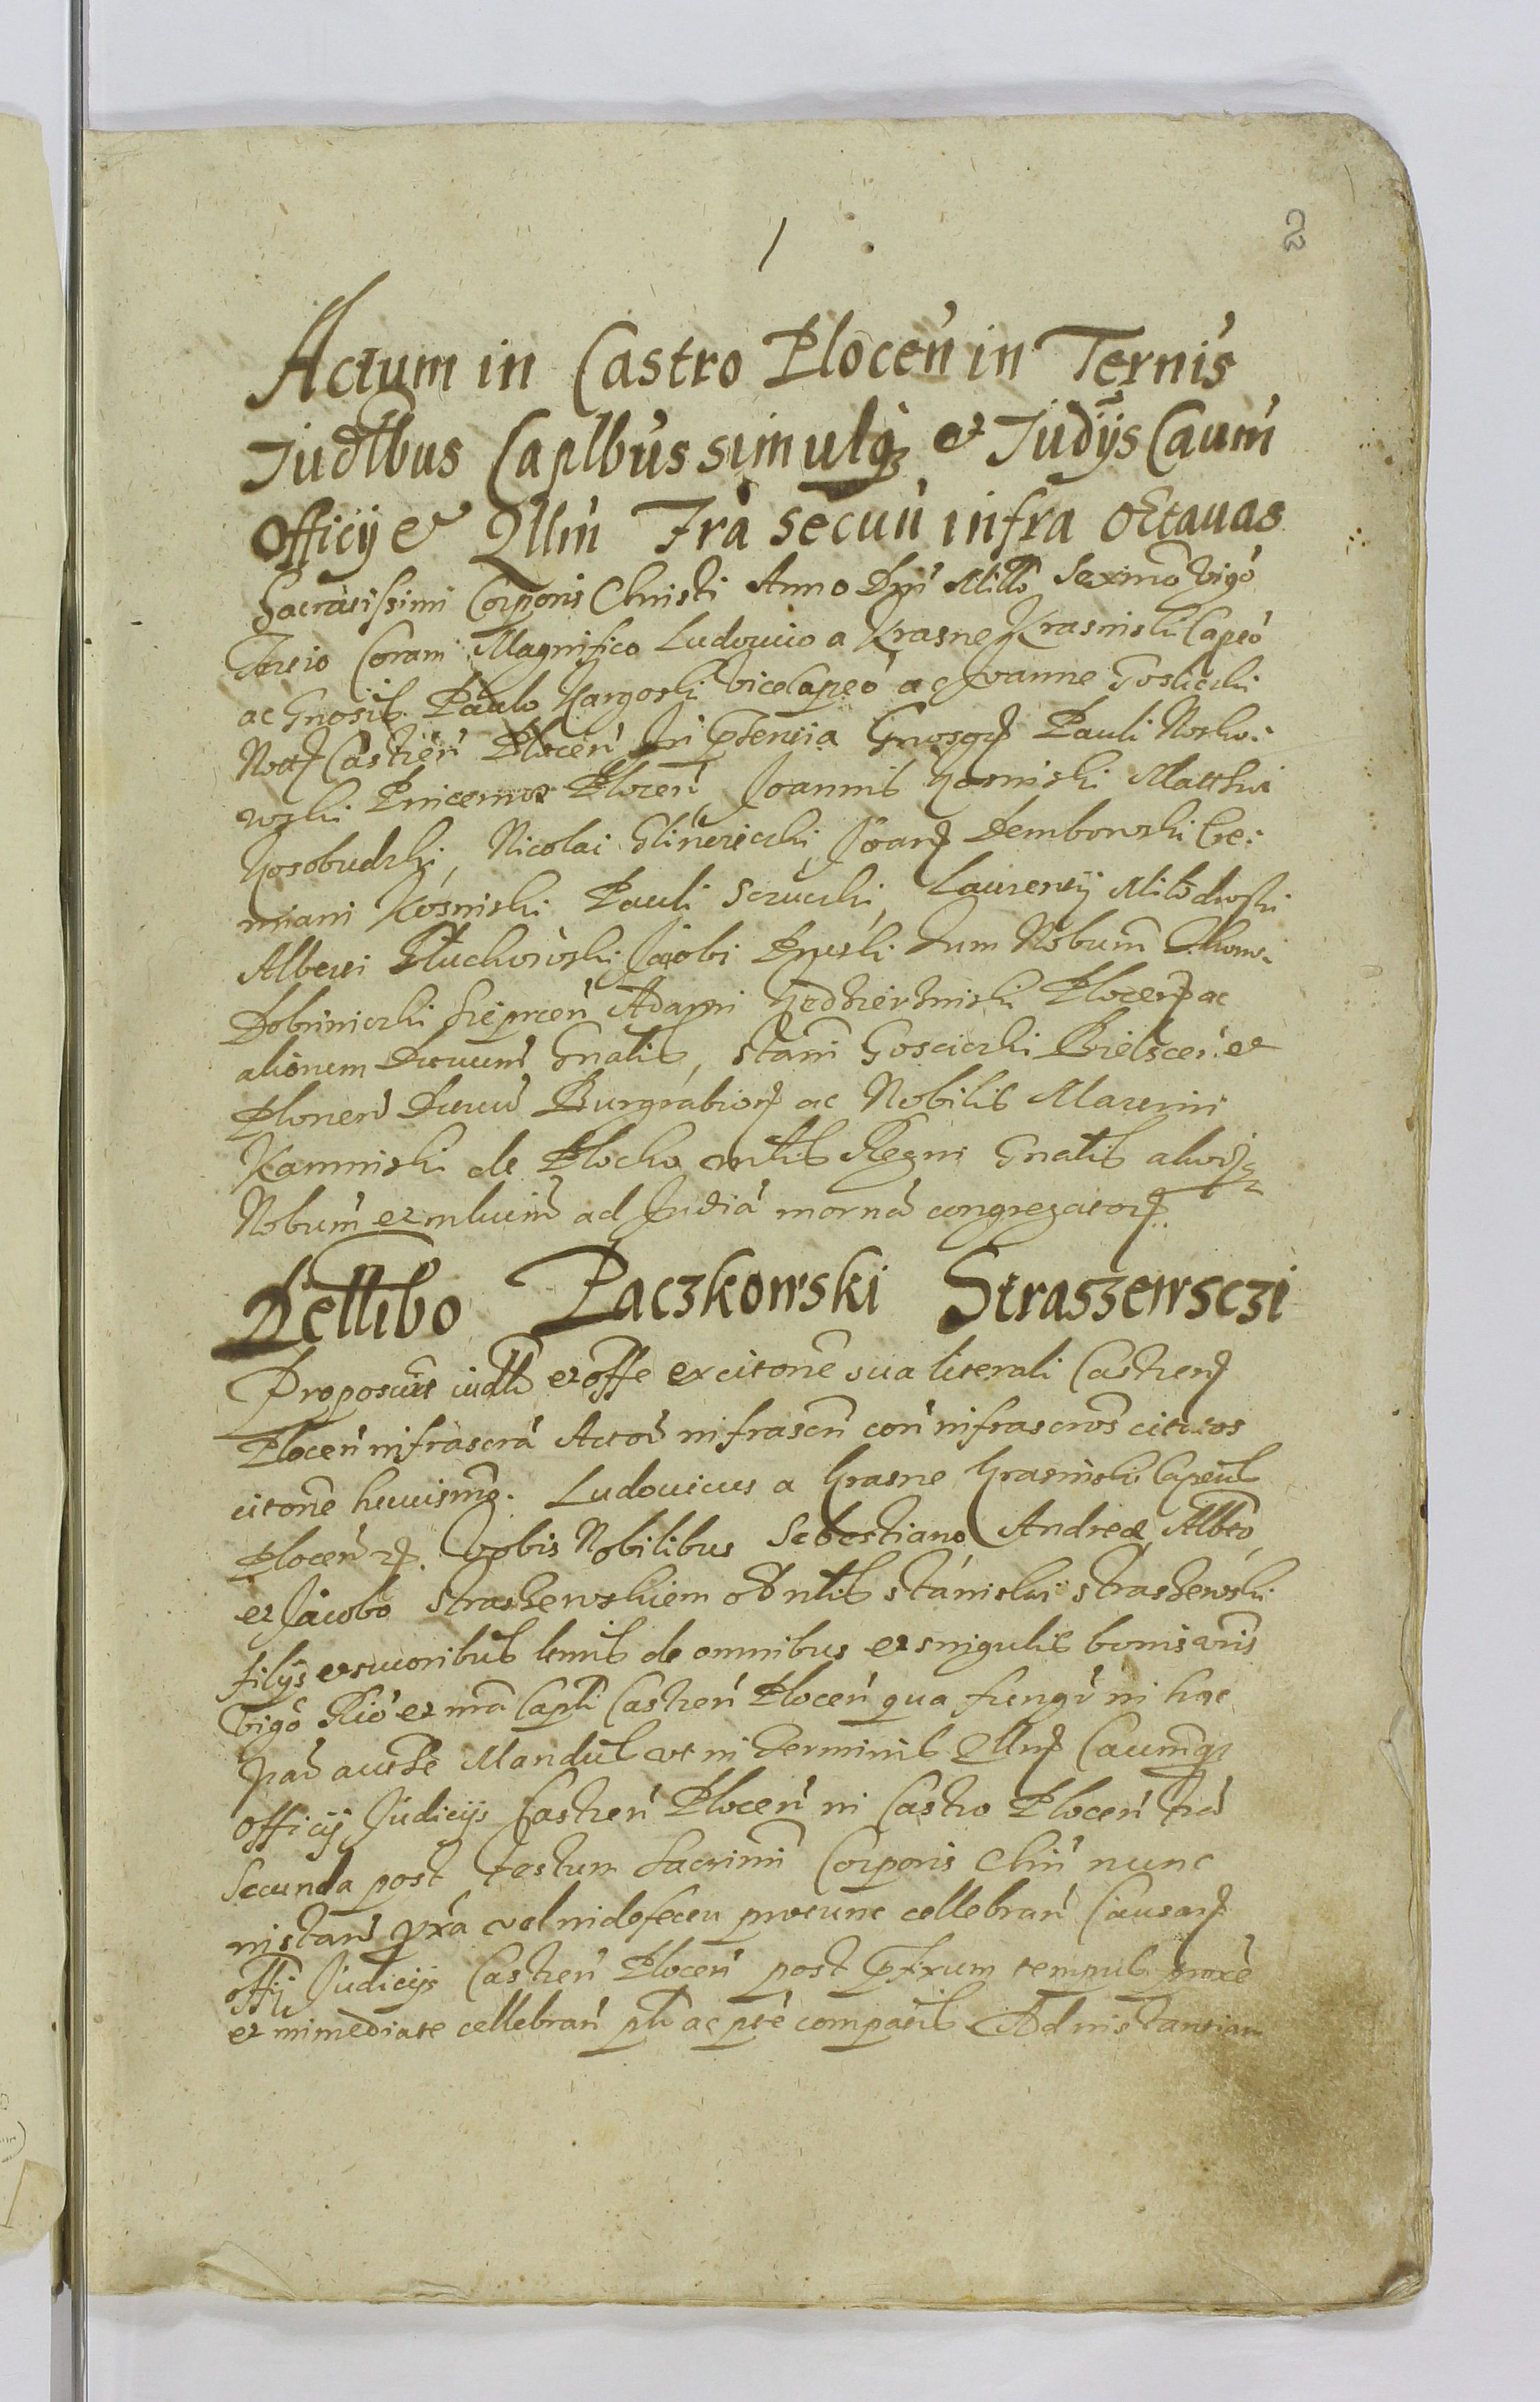 1
2
Actum in Castro Plocen in Ternis
Judlbus Caplbus simulq et Judijs Caum
officij et Qllm Fra secun infra octauas
Sacratissimi Corporis Christi Anno Dni Millo Sexmo vigo
Tertio Coram Magnifico Ludouico a Krasne Krasinski Capeo
ac Gnosis Paulo Kargoski vice Capeo ac Joanne Goslicki
Nott Castren Plocen In Pntia Gnosor Pauli Nosko:
wski Pincernae Plocen Joannis Kosmiski Matthei
Kosobudzki, Nicolai Glinieiecki, Joan Dembowski Cre:
miani Kosmiski Pauli Szucki, Laurentij Milodroski
Alberti Gluchowski, Jacobi Dpuski tum Nobum Thom:
Dobrinieczki Sieprcen Adami Niedzierzniski Plocen ac
aliorum Duorum Gnalis, Stani Goscicki Bielscen et
Plonen Ducum Burgrabior ac Nobilis Martini
Kamniski de Plocko mlis Regni Gnalis alior
Nobum et mluum ad Judia morna congregator
Dellibo Paczkowski Straszewsczi
Proposuit iudlr et offe ex citone sua literali Castren
Plocen infrascra Actor infrascri con infrascros citatos
citone huiusmo. Ludouicus a Krasne Krasinski Capeus
Plocen Vobis Nobilibus Sebestiano Andreae Albto
et Jacobo Straszewskiem olim nlis Stanislai Straszewski
filijs et sucoribus lemis de omnibus et singulis bonis vris
vigo Rio et ma Capli Castren Plocen qua fungor in hac
par authe Mandus vt in terminis Qllm Caumq
officij Judicijs Castren Plocen in Castro Plocen fra
Secunda post festum Sacrimi Corporis Chri nunc
instan pxa vel in defectu protunc cellebran Causar
offij Judicijs Castren Plocen post Pfxum tempus proxe
et immediate cellebran plr ac pte comparis Ad instantiam